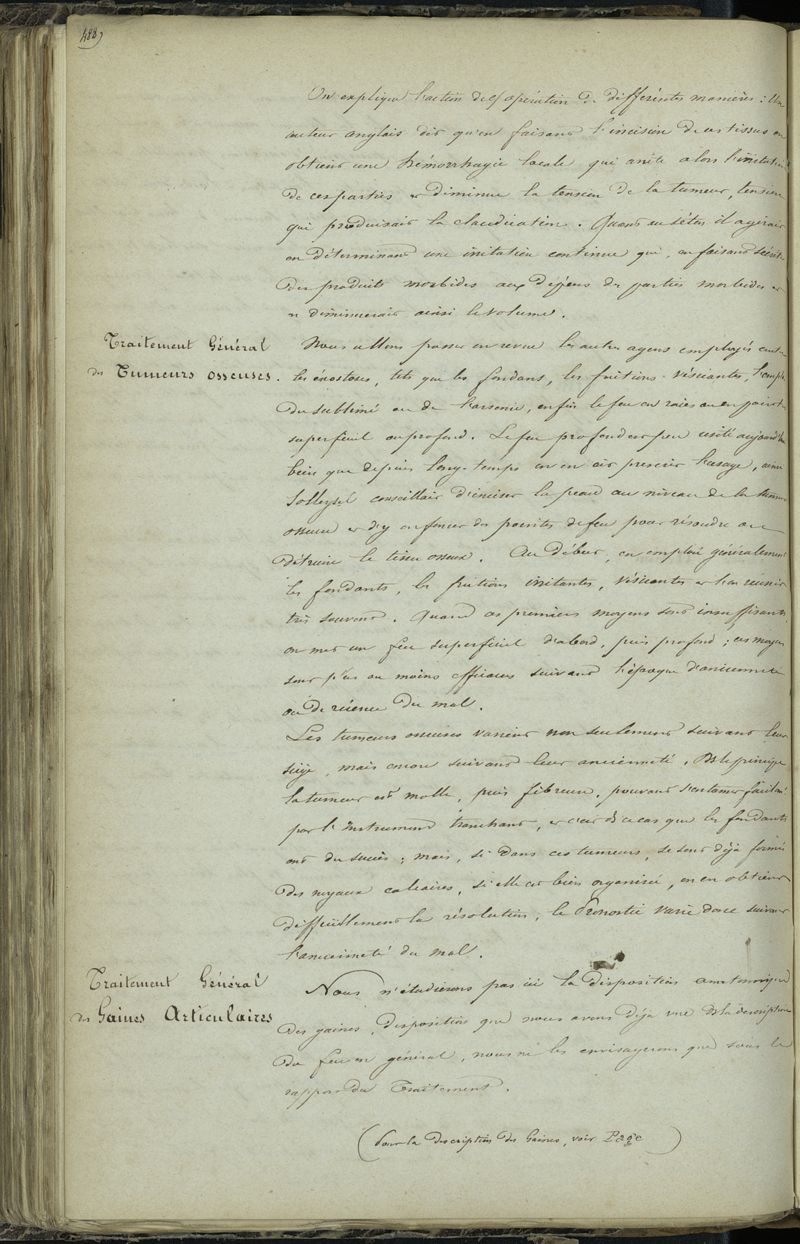 488)
On explique l'action de l'opération de différentes manières : Un
auteur anglais dit qu'en faisant l'incision de ces tissus on
obtient une hémorrhagie locale qui arrête alors l'irritation
de ces parties et diminue la tension de la tumeur, tension
qui produisait la claudication. Quant au séton il agirait
en déterminant une irritation continue qui, en faisant sécréter
des produits morbides aux dépens des parties morbides et
en diminuerait ainsi le volume.
Traitement Général
des Tumeurs osseuses.
Nous allons passer en revue les autres agens employés contre
les exostoses, tels que les fondans, les frictions vésicantes, l'emploi
du sublimé ou de l'arsenic, enfin le feu en raies ou en pointes
superficiel ou profond. Le feu profond est peu usité aujourd'hui
bien que depuis long-temps on en ait prescrit l'usage, ainsi
Solleysel conseillait d'inciser la peau au niveau de la tumeur
osseuse et d'y enfoncer des pointes de feu pour résoudre ou
détruire le tissu osseux. Au début, on emploie généralement
les fondants, les frictions irritantes, vésicantes et l'on réussit
très souvent. Quand ces premiers moyens sont insuffisants,
on met un feu superficiel d'abord, puis profond ; ces moyens
sont plus ou moins efficaces suivant l'époque d'ancienneté
ou de récence du mal.
Les tumeurs osseuses varient non seulement suivant leur
siège, mais encore suivant leur ancienneté. Ds le principe
la tumeur est molle, puis fibreuse, pouvant s'entamer facilemt
par l'instrument tranchant, et c'est ds ce cas que les fondants
ont du succès ; mais, si dans ces tumeurs, se sont déjà formés
des noyaux calcaires, si elle est bien organisée, on en obtient
difficilement la résolution, le Pronostic varie donc suivant
l'ancienneté du mal.
Traitement Général
des Gaines Articulaires
Nous n'étudierons pas ici la disposition anatomique
des gaines, disposition que nous avons déjà vue ds la description
du feu en général, nous ne les envisagerons que sous le
rapport du Traitement.
(Pour la description des Gaines, voir Page )